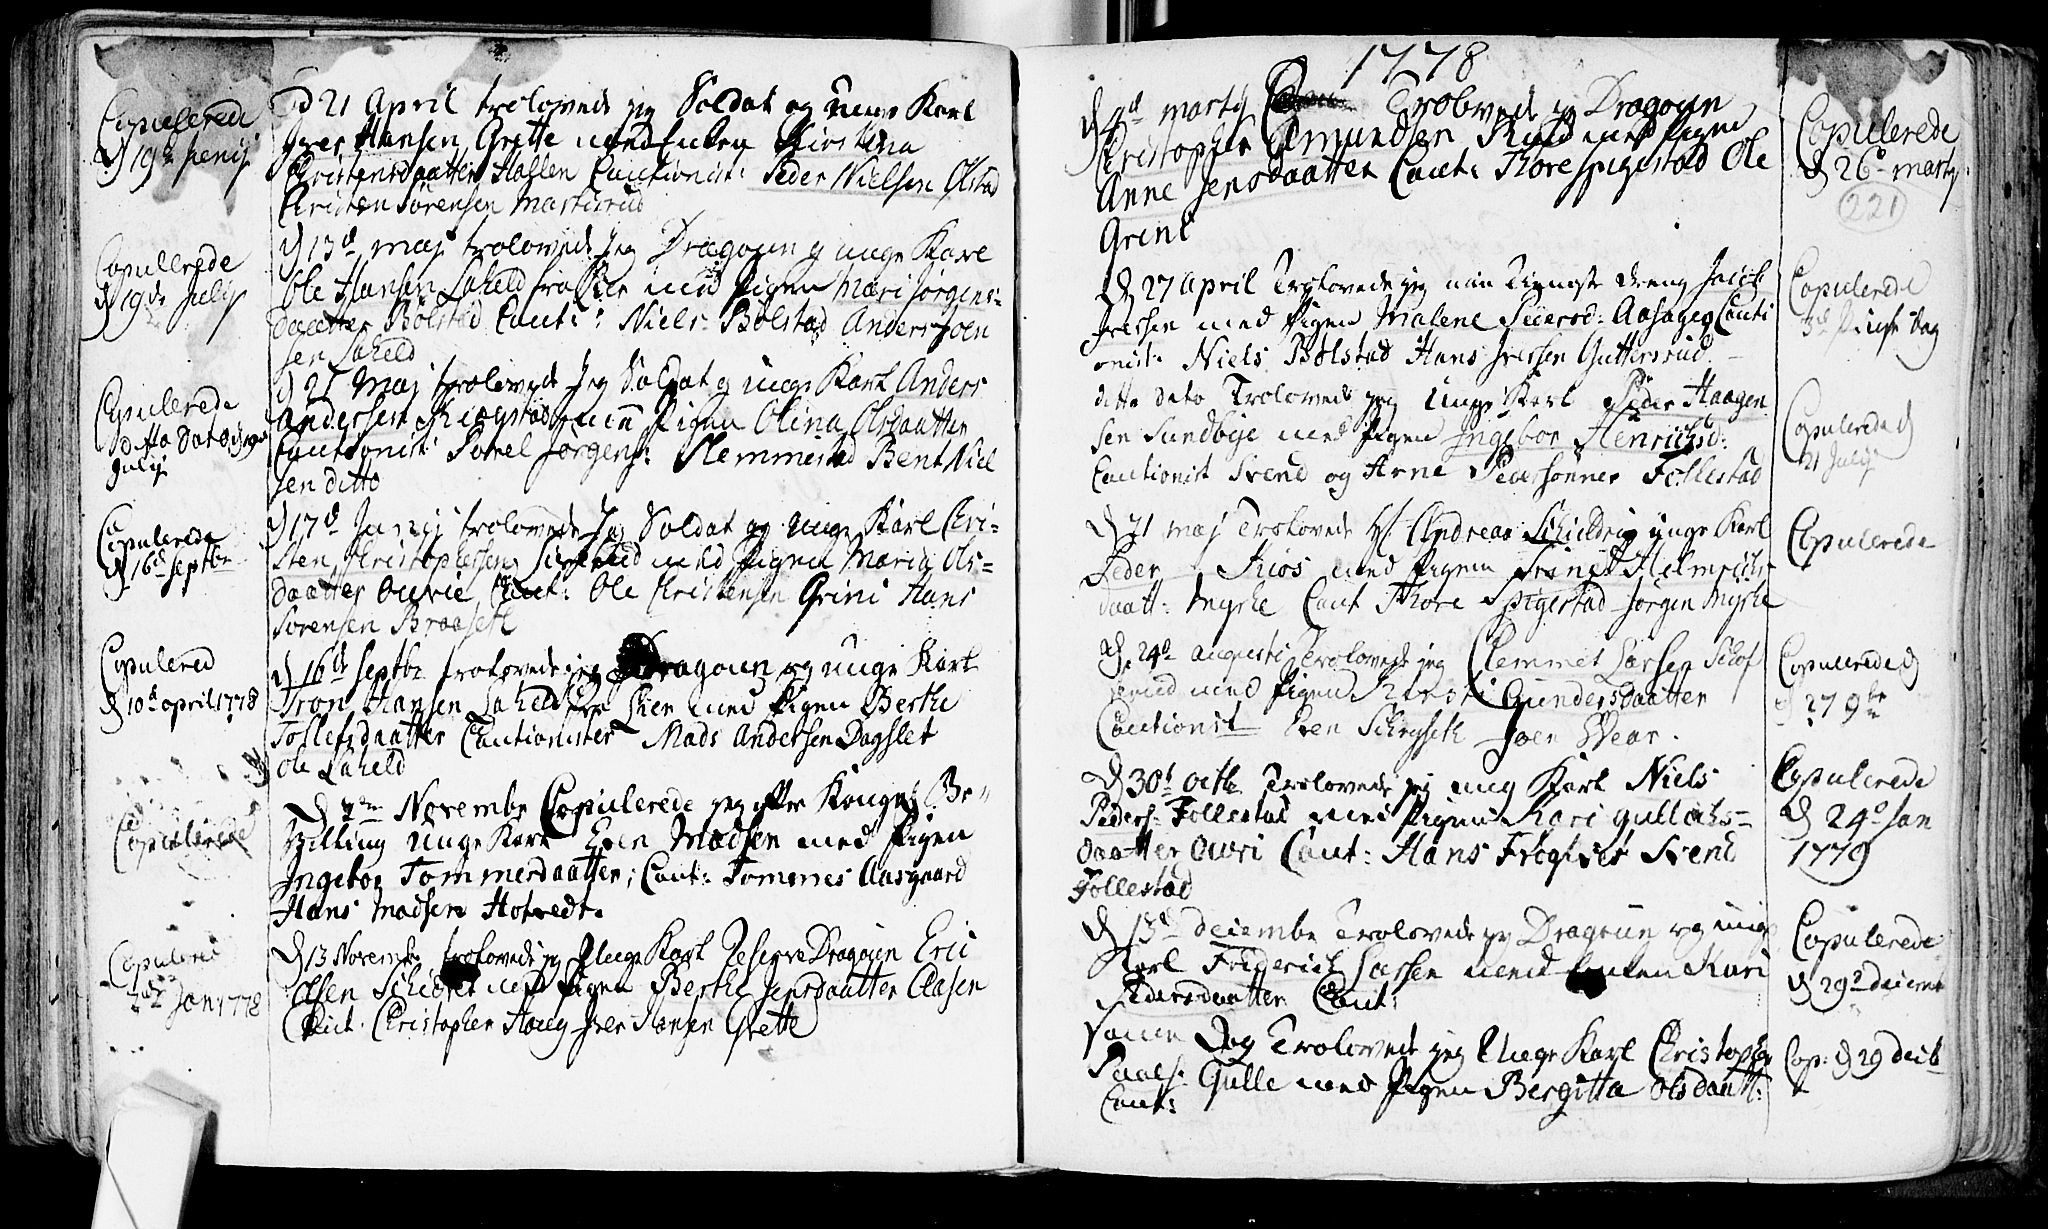 Copulerede
d 19de Junij
d 21 April trolovede jeg Soldat og unge Karl
Iver Hansen Grette med Enken Kirstina
Christensdaatter Haslen Cautionist: Peder Nielsen Ølstad
Christen Sørensen Martisrud
Copulerede
d 19de Julij
d 13d maj trolovede Jeg Dragoun og unge Karl
Ole Hansen Laheld fra Lier med Pigen Mari Jørgens-
daatter Bølstad Caut: Niels Bølstad Anders Joen
sen Laheld
Copulerede
ditto Dato d 19de
Julij
d 21 Maj trolovede Jeg Soldat og unge Karl Anders
Andersen Skiegstad med Pigen Olina Olsdaatter
Cautionist: Povel Jørgens: Klemmestad Bent Niel
sen ditto
Copulerede
d 16d Septbr
d 17d Junij trolovede Jeg Soldat og unge Karl Chri-
sten Christophersen med Pigen Maria Ols-
daatter Ourie Caut: Ole Christensen Grini Hans
Sørensen Braaseth
Copulered
d 10d april 1778
d 16de Septbr trolovede jeg Dragoun og unge Karl
Tron Hansen Laheld fra Lier med Pigen Berthe
Tollefsdaatter Cautionister Mads Andersen Dagslet
Ole Laheld
Copulerede
d Novembr Copulerede jeg efter Konge Be-
villing unge Karl Even Madsen med Pigen
Ingebor Tommerdaatter; Caut: Tommes Aasgaard
Hans Madsen Hotvedt.
Copulered
2d Jan 1778
d 13 Novembr trolovede jeg Unge Karl Reserve Dragoun Eric
Olsen med Pigen Berthe Jensdaatter Clasen
Caut. Christopher Houg Iver Hansen Grette
1778
d 4d Martij Trolovede jeg Dragoun
Christopher Amundsen med Pigen
Anne Jensdaatter Caut: Thore Spigestad Ole
Grini
Copulerede
d 26d Martij
221
d 27 April Trolovede jeg min Tieneste Dreng Jacob
Iversen med Pigen Malene Siversd: Aasager Cauti
onist: Niels Bølstad Hans Iversen Guttersrud
Copulerede
3d Pintse Dag
ditto dato Trolovede jeg Unge Karl Peder Haagen
sen Sundbye med Pigen Ingebor Henrichsd:
Cautionist Svend og Arne Pedersønner Follestad
Copulerede d
21 Julij
d 21 Maj Trolovede Hr Andreas Schieldrig unge Karl
Peder Kios med Pigen Trinet Helmrichs
daatt: Myrhe Caut Thore Spigestad Jørgen Myrhe
Copulerede
d. 24d Augusti Trolovede jeg Clemmet Larsen
med Pigen Kirsti Gundersdaatter
Cautionist Even Joen Wear.
Copulerede d
d 27 9br
d 30t Octbr Trolovede jeg ung Karl Niels
Peders: Follestad med Pigen Kari Gullachs-
daatter Ouri Caut: Hans Frøgtvet Svend
Follestad
Copulerede
d 24d Jan
1779
d 13d decembr Trolovede jeg Dragoun og unge
Karl Friderich Larsen med Enken Kari
Pedersdaatter Caut:
Copulerede
d 29d decembr
samme Dag Trolovede jeg Unge Karl Christopher
Paals: Gulle med Pigen Bergitta Olsdaatt:
Caut:
Cop: d 29 decb